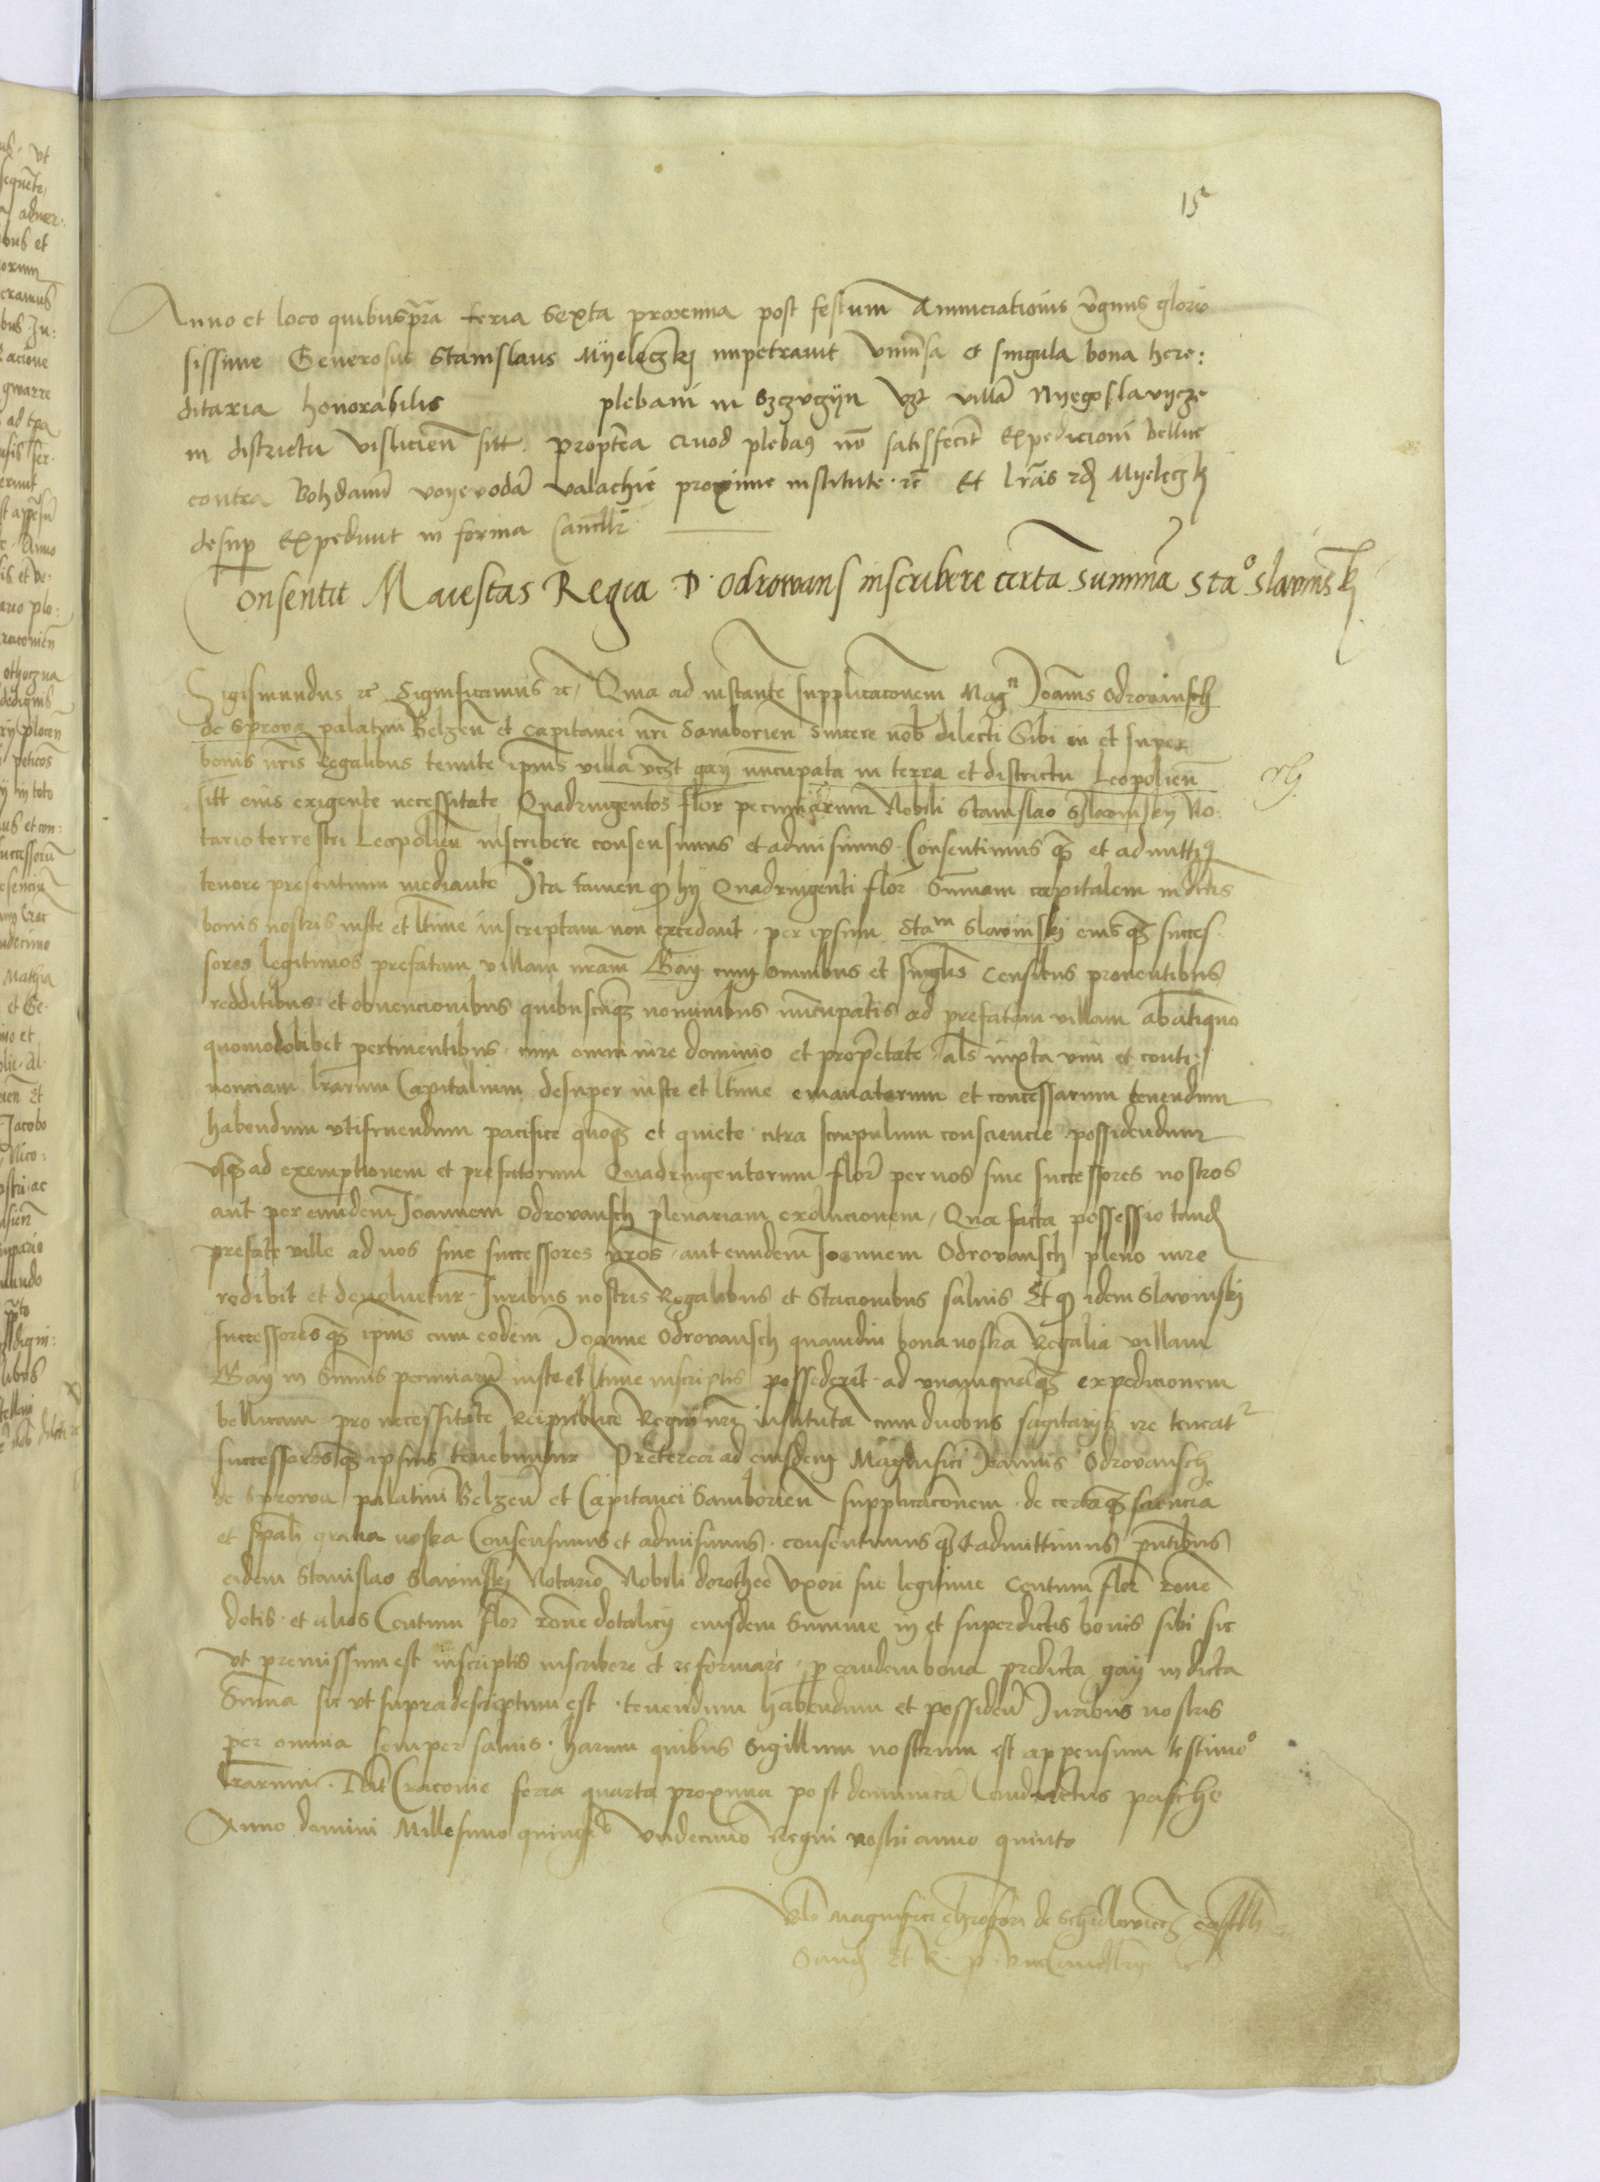 15
Anno et loco quibus supra feria sexta proxima post festum Annunciationis virginis glorio
sissime Generosus Stanislaus Myeleczkj impetravit universa et singula bona here:
ditaria honorabilis plebani in Szczvczyn vzt villam Nyegoslavycze
in districtu vislicien sitt. propterea quod plebanus non satisfecit Expedicioni bellice
contra Bohdanum voyevodam valachie proxime institute. rc Et literas idem Myeleczkj
desuper Expediuit in forma Cancellar
Consentit Maiestas Regia D. Odrowans inscribere certam summam Stao Slavinskj
Sigismundus rc Significamus rc, Quia ad instantem supplicationem Magn Joannis Odrovansch
de Sprova palatini Belzen et Capitanei nri Samborien Sincere nob dilecti Sibi in et super
bonis nris Regalibus tenute ipius villa vczt gay nuncupata in terra et districtu Leopolien
sitt eius exigente necessitate Quadringentos flor pecuniarum Nobili Stanislao Slavinsky No:
tario terrestri Leopolien inscribere consensimus et admisimus. Consentimusqz et admittimus
tenore presentium mediante Ita tamen quod hij Quadringenti flor Summam capitalem in dictis
bonis nostris iuste et ltime inscriptam non excedant. per ipsum Stam Slavinskj eiusqz succes.
sores legitimos prefatam villam nram Gay cum omnibus et singulis censibus proventibus
redditibus et obvencionibus quibuscunqz nominibus nuncupatis ad prefatam villam ab antiquo
quomodolibet pertinentibus. cum omni iure dominio et proprietate. als iuxta vim et conti:
nenciam lrarum Capitalium desuper iuste et ltime emanatarum et concessarum tenendum
habendum vtifruendum pacifice quoqz et quiete citra scrupulum consciencie possidendum
vsqz ad exemptionem et prefatorum Quadringentorum flor per nos sive successores nostros
aut per eundem Joannem Odrovansch plenariam exolucionem, Qua facta possessio tandem
prefate ville ad nos sive successores nros. aut eundem Joannem Odrovansch pleno iure
redibit et devoluetur. Iuribus nostris Regalibus et Stacionibus saluis Et quod idem Slavinskj
successoresqz ipius cum eodem Joanne Odrovansch quamdiu bona nostra Regalia villam
Gay in Summis pecuniarum iuste et ltime inscriptis possederit. ad vnamquamqz expedicionem
bellicam pro necessitate Reipublice Regni nri institutam cum duobus sagitariis ire teneatur
successoresqz ipsius tenebuntur Preterea ad eiusdem Magnifici Joannis Odrovansch
de Sprowa palatini Belzen et Capitanei Samborien supplicationem. de certaqz sciencia
et spali gratia nostra Consensimus et admisimus. consentimusqz et admittimus pntibus
eidem Stanislao Slavinskj Notario Nobili dorothee vxori sue legitime Centum flor rone
dotis. et alios Centum flor rone dotalicij eiusdem Summe in et super dictis bonis sibi sic
vt premissum est inscriptis inscribere et reformare. per eandem bona predicta gay in dicta
Summa sic vt supradescriptum est. tenendum habendum et possidend Iuribus nostris
per omnia semper saluis. harum quibus Sigillum nostrum est appensum testimo
lrarum. Dat Cracovie feria quarta proxima post dominicam Conductus pasche
Anno domini Millesimo quingeo Vndecimo Regni nostri anno quinto
magnifici de Schidlovicz castell
Sand et R. p. vicecancellarij